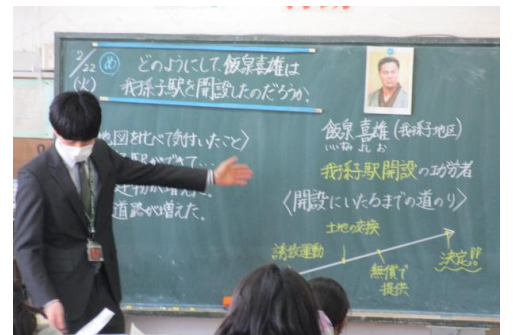 2/22
(火)
め どのようにして、飯泉喜雄は
我孫子駅を開設したのだろうか。
図を比べて気付いたこと〉
駅ができて…
建物が増えた。
道路が増えた。
飯泉喜雄(我孫子地区)
いいずみ よしお
我孫子駅開設の功労者
〈開設にいたるまでの道のり〉
土地の交換
誘致運動
無償で
提供
決定!!